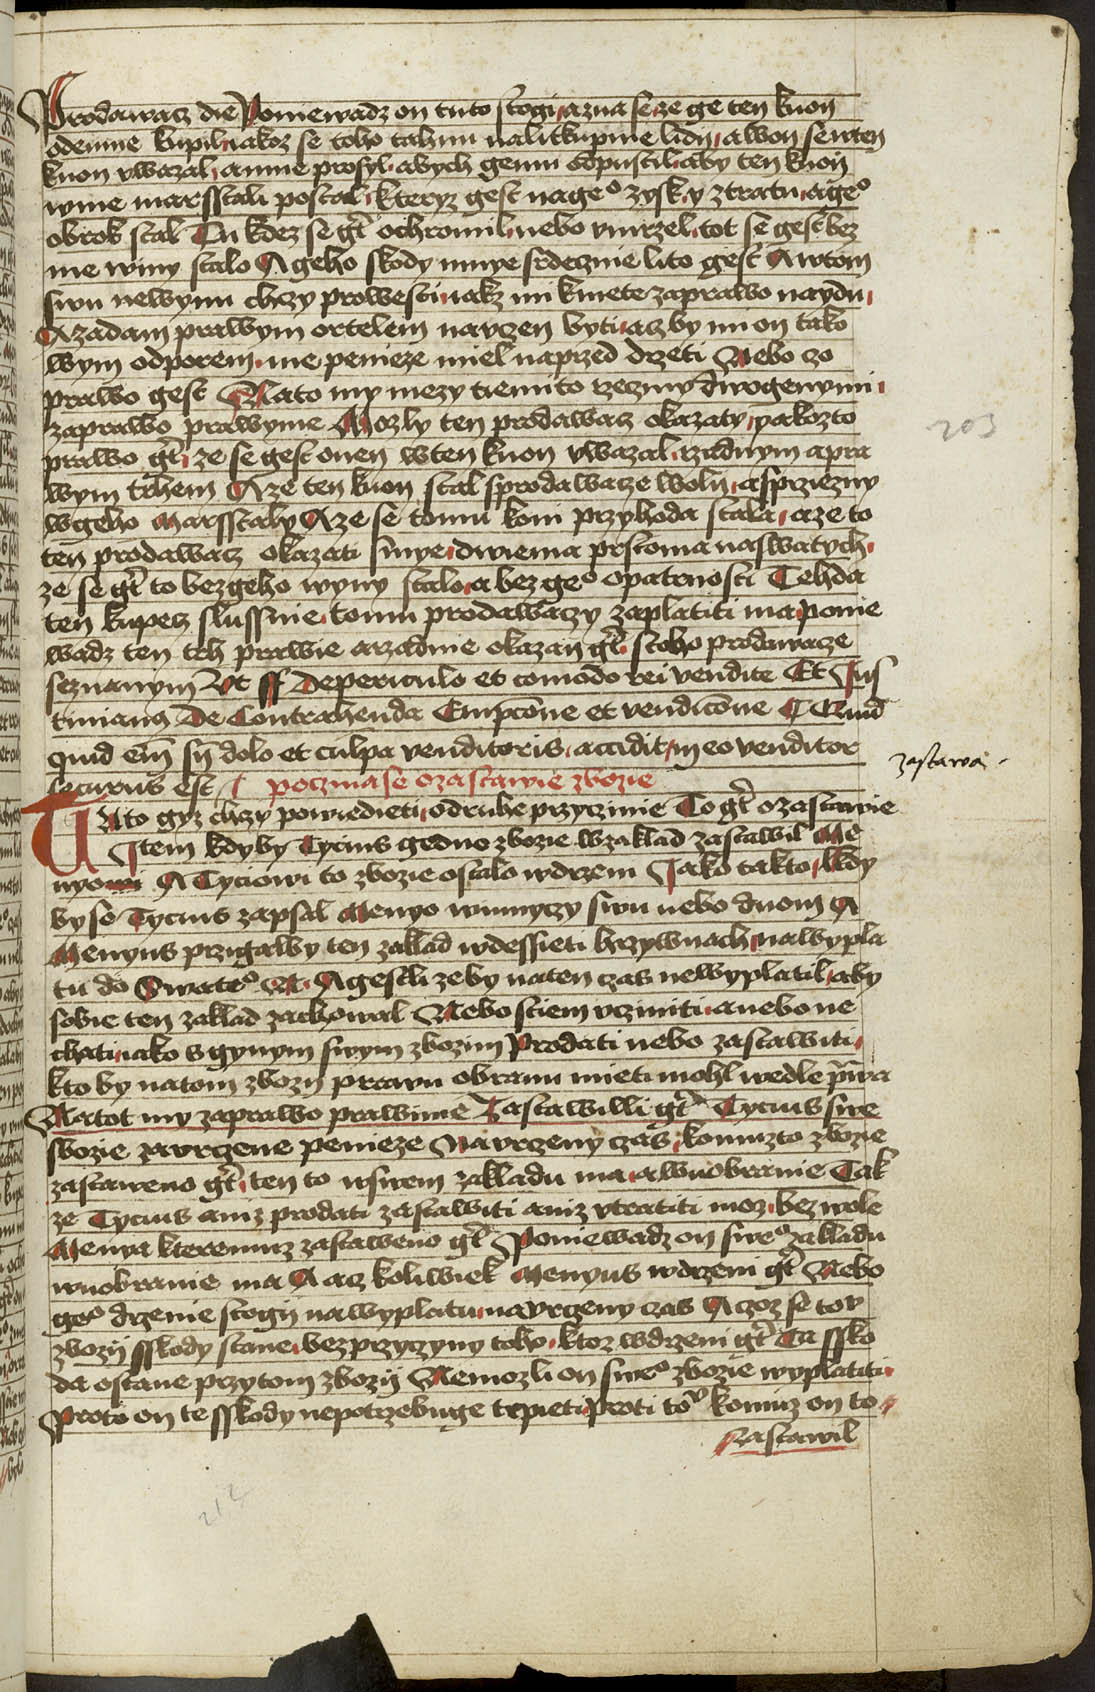 Prodawacz die Poniewadz on tuto stogi a zna se ze ge ten kuon
odemne kupil iakoz se toho tahnu na litkupnie lidi a w on se w ten
kuon vwazal a mne prosyl abych gemu odpustil aby ten kuon
w me marsstali postal kteryz gest na geº zysk y ztratu a geº
obrok stal Tu kdez se gt ochromil nebo vmrzel tot se gest bez
me winy stalo A geho skody mnye srdecznie lito gest A w tom
swu newynu chczy prowesti iakz mi kmete za prawo naydu
A zadam prawym ortelem nauczen byti acz by mi on tako
wym odporem me penieze miel naprzed drzeti Nebo czo
prawo gest Na to my mezy tiemito rzeczmy dwogenymi
za prawo prawyme Mozly ten prodawacz okazaty yakozto
prawo gt ze se gest onen w ten kuon vwazal rzadnym a pra
wym trhem A ze ten kuon stal s prodawacze woli a s prziezny
w geho Marsstaly A ze se tomu kom przyhoda stala a ze to
ten prodawacz okazati smye dwiema prstoma na swatych
ze se gt to bez geho wyny stalo a bez geº opatrnosti Tehda
ten kupecz slussnie tomu prodawaczy zaplatiti ma ponie
wadz ten trh prawie a rzadnie okazan gt s toho prodawacze
seznanym Vt ff De periculo et comodo rei vendite Et Jus
tinianus De Contrahenda Empcone et vendicone ¶ Quid
quid em sn dolo et culpa venditoris accidit in eo venditor
securus est ¶ poczina se o zastawie zbozie
zastawa
Uto gyz chczy powiedieti o druhe przyczinie To gt o zastawie
Item kdy by Tycius gedno zbozie w zaklad zastawil Me
nyowi A Tyciowi to zbozie ostalo w drzeni Jako takto kdy
by so Tycius zapsal Menyo winnyczy swu nebo duom A
Menyus przigal by ten zaklad w dessieti hrzywnach na wypla
tu do Swateº N. A gestli ze by na ten czas newyplatil aby
sobie ten zaklad zachowal Nebo s tiem vcziniti a nebo ne
chati iako s gynym swym zbozim Prodati nebo zastawiti
kto by na tom zbozy prawu obranu mieti mohl wedle prawa
Na tot my za prawo prawime Zastawil li gt Tycius swe
sbozie za vrczene penieze Na vrczeny czas komuzto zbozie
zastaweno gt ten to w swem zakladu ma a w uobranie Tak
ze Tycius aniz prodati zastawiti aniz vtratiti moz bez wole
Menya kteremuz zastaweno gt Poniewadz on sweº zakladu
w uobranie ma A acz koliwiek Menyus w drzeni gt Nebo
geº drzenie stogij na wyplatu na vrczeny czas A czoz se to v
zbozij sskody stane bez przyczyny toho ktoz w drzeni gt Ta ssko
da ostane przy tom zbozij Nemozli on sweº zbozie wyplatiti
Proto on te sskody nepotrzebuge trpieti Proti toº komuz on to
zastawil
203
212